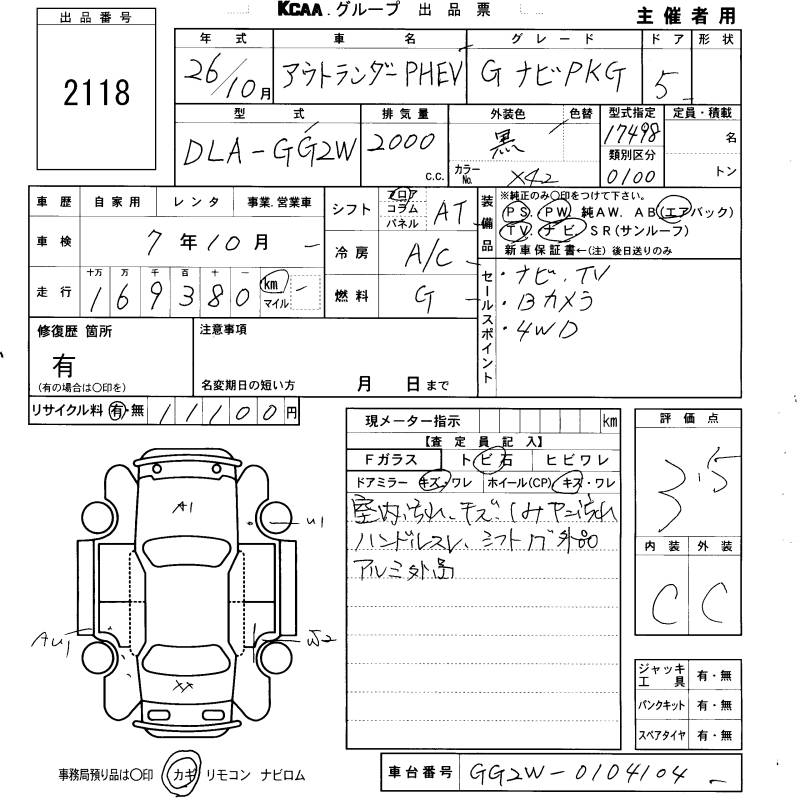 KCAA.グループ 出品票
主催者用
出品番号
2118
年式 車名 グレード ドア 形状
26/10月 アウトランダーPHEV G ナビPKG 5
型式 排気量 外装色 色替 型式指定 定員・積載
DLA-GG2W 2000 c.c. 黒 カラーNo. X42 17498 名
類別区分
0100 トン
車歴 自家用 レンタ 事業.営業車
車検 7年10月
走行 十万 万 千 百 十 一
169380 km マイル
シフト フロア コラム パネル AT
冷房 A/C
燃料 G
装備品
※純正のみ○印をつけて下さい。
PS. PW. 純AW. AB(エアバック)
TV. ナビ SR(サンルーフ)
新車保証書←(注) 後日送りのみ
セールスポイント
・ナビ.TV
・Bカメラ
・4WD
修復歴 箇所
有
(有の場合は○印を)
注意事項
名変期日の短い方 月 日まで
リサイクル料 有・無 11100円
現メーター指示 km
【査定員記入】
Fガラス トビ石 ヒビワレ
ドアミラー キズ・ワレ ホイール(CP) キズ・ワレ
室内汚れ、キズ、しみヤニ汚れ
ハンドルスレ、シフトノブ外品
アルミ外品
評価点
3.5
内装 外装
C C
A1
U1
AU1
W2
XX
ジャッキ工具 有・無
パンクキット 有・無
スペアタイヤ 有・無
事務局預り品は○印 カギ リモコン ナビロム
車台番号 GG2W-0104104